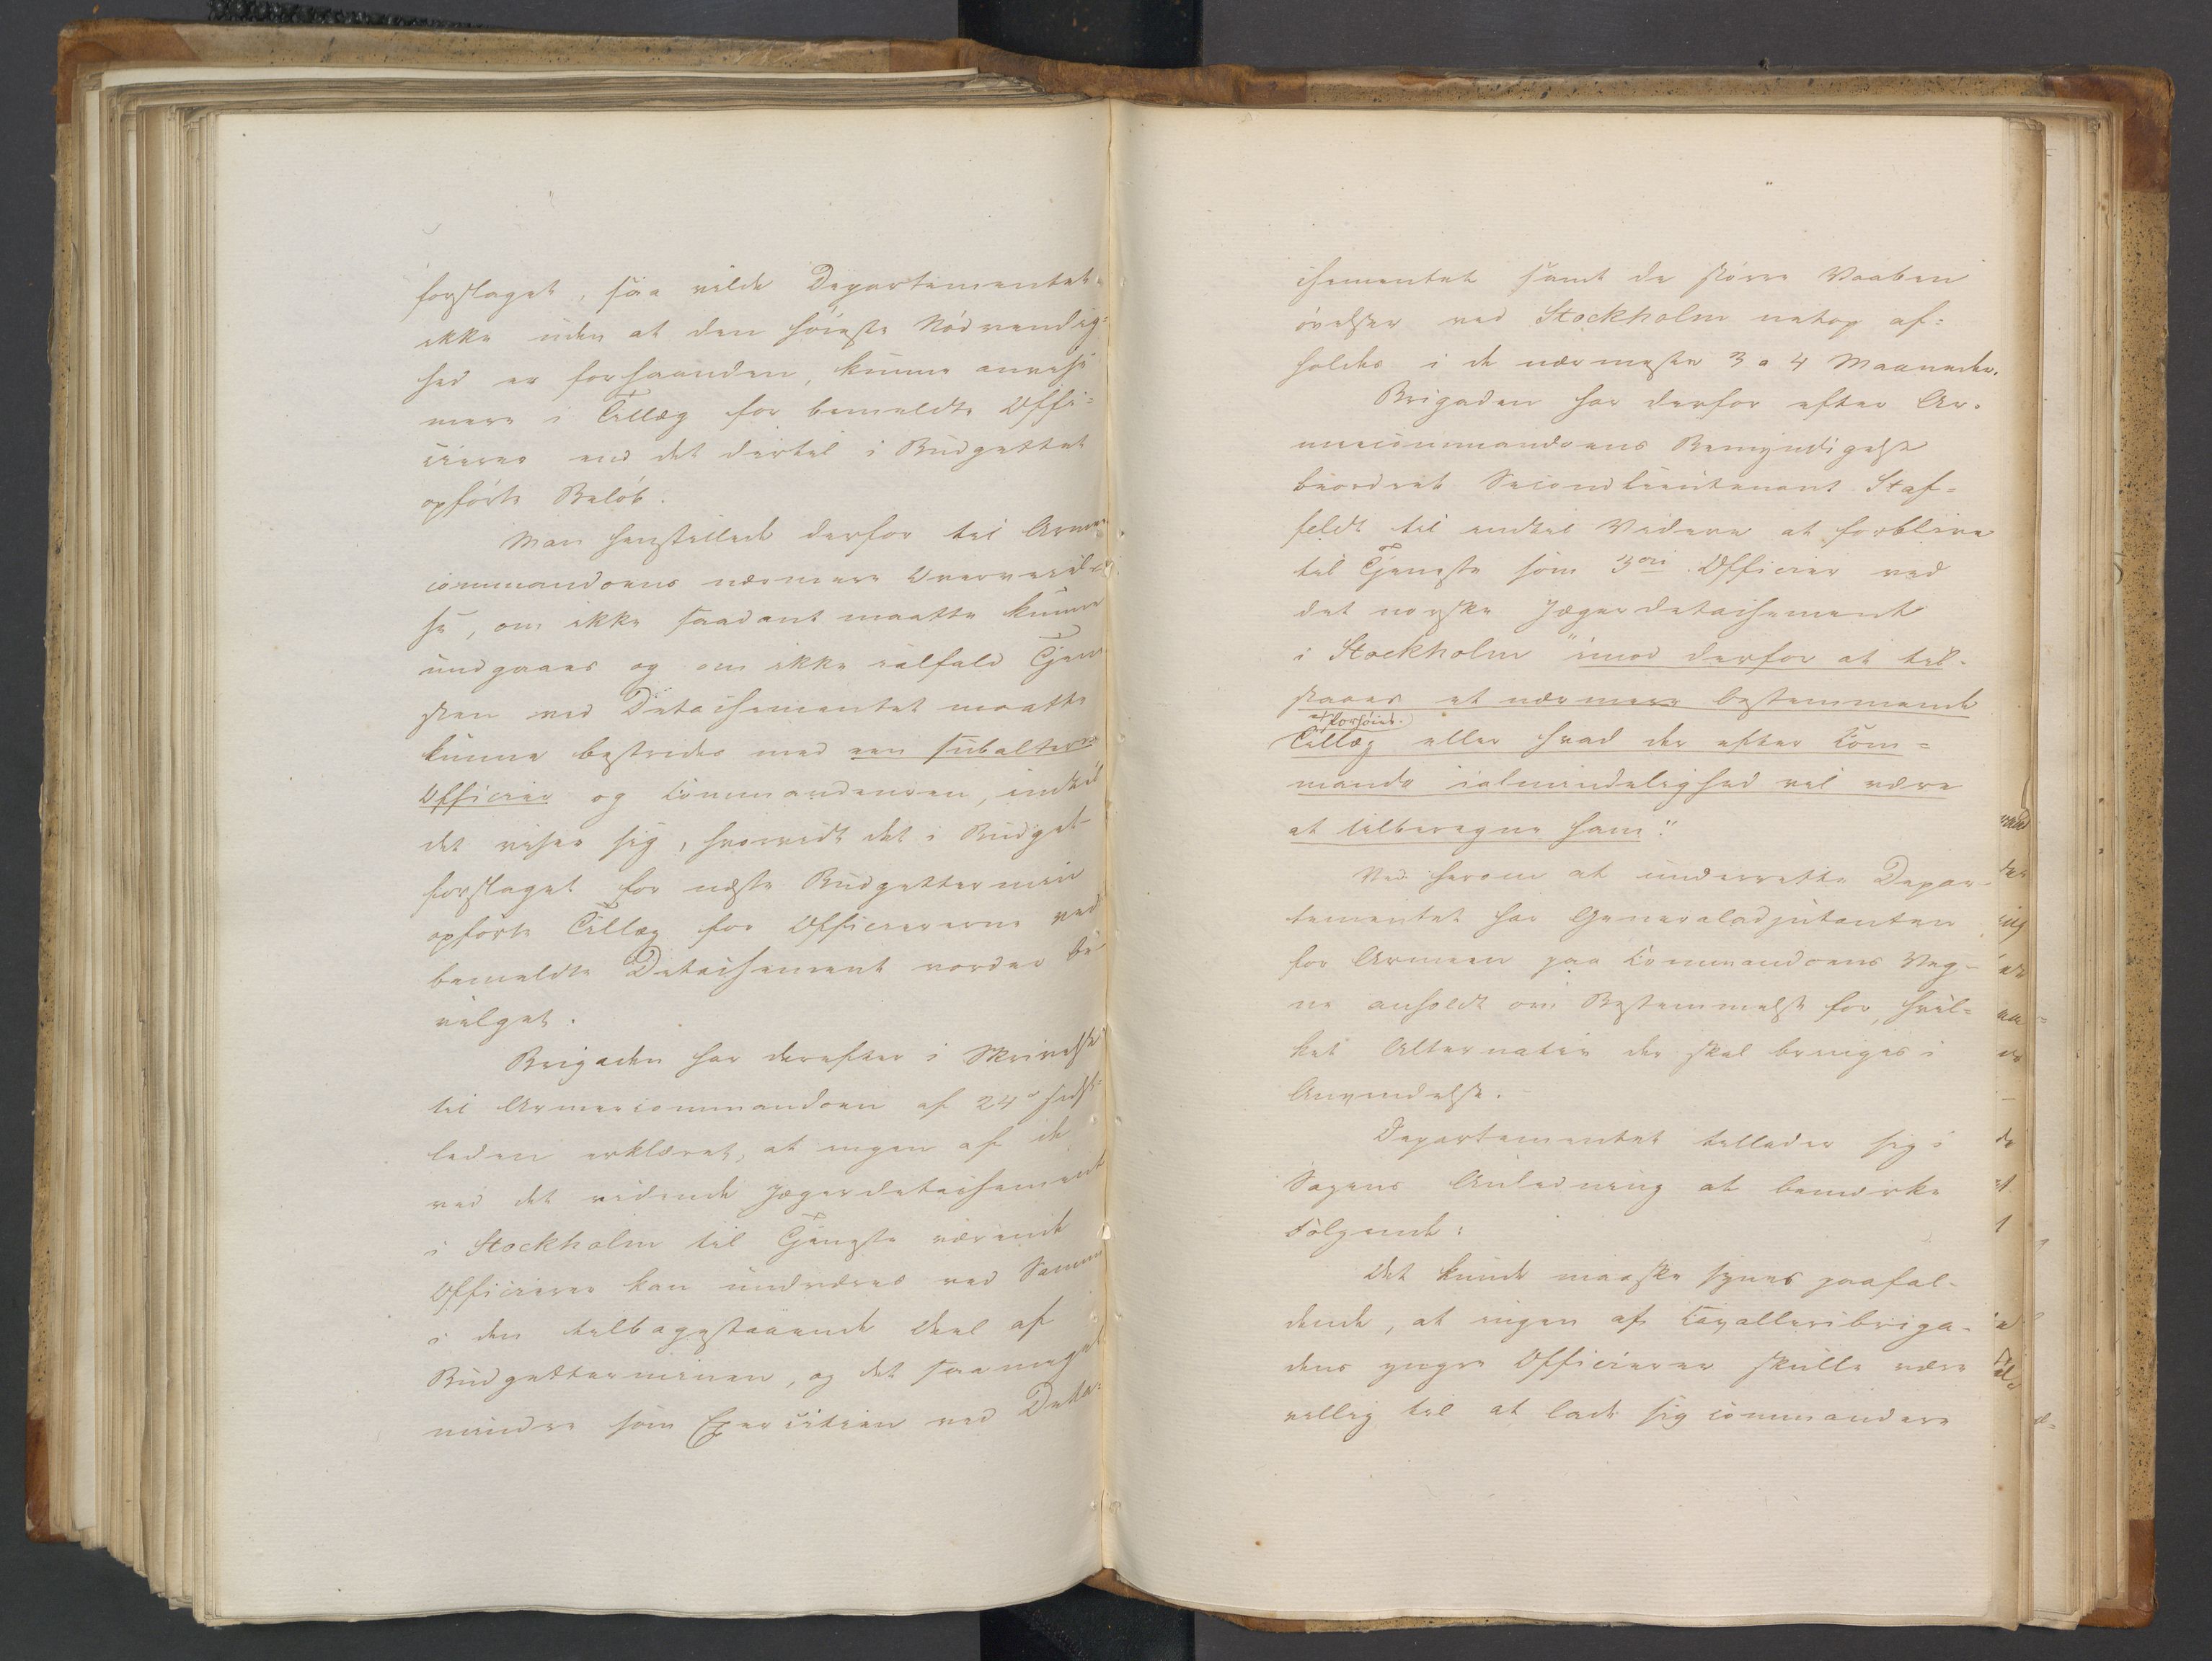 forslaget, saa vilde Departementet
ikke uden at den høieste Nødvendig=
hed er forhaanden, kunne anvise
mere i Tillæg for bemeldte Offi=
cierer end det dertil i Budgettet
opførte Beløb.
Man henstillede derfor til Armee
commandoens nærmere Overveiel=
se, om ikke saadant maatte kunne
undgaaes og om ikke ialfald Tjene
sten ved Detachementet maatte
kunne bestrides med een subaltern
Officier og Commandeuren, indtil
det viser sig, hvorvidt det i Budget-
forslaget for næste Budgettermin
opførte Tillæg for Officiererne ved
bemeldte Detachement vorder be-
vilget.
Brigaden har derefter i Skrivelse
til Armeecommandoen af 24de sidst-
leden erklæret, at ingen af de
ved det ridende Jægerdetachement
i Stockholm til Tjeneste værende
Officierer kan undværes ved Samme
i den tilbagestaaende Deel af
Budgetterminen, og det saameget
mindre som Exercitien ved Deta=
chementet samt de større Vaaben
øvelser ved Stockholm netop af=
holdes i de nærmeste 3 a 4 Maaneder.
Brigaden har derfor efter Ar=
meecommandoens Bemyndigelse
beordret Secondlieutenant Staf=
feldt til indtil Videre at forblive
til Tjeneste som 3die Officier ved
det norske Jægerdetachement
i Stockholm "imod derfor at til-
staaes et nærmere bestemmende
forhøiet
Tillæg eller hvad der efter Com=
mando ialmindelighed vil være
at tilberegne ham."
Ved herom at underrette Depar-
tementet har Generaladjutanten
for Armeen paa Commandoens Veg-
ne anholdt om Bestemmelse for, hvil=
ket Alternativ der skal bringes i
Anvendelse.
Departementet tillader sig i
Sagens Anledning at bemærke
Følgende:
Det kunde maaske synes paafal-
dende, at ingen af Cavalleribriga-
dens yngre Officierer skulle være
villig til at lade sig commandere